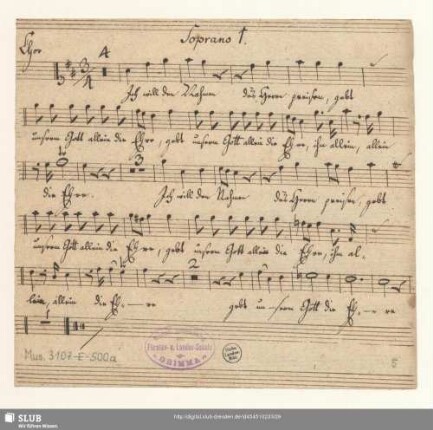 Soprano 1.
Chor
4
Ich will den Nahmen des Herrn preisen, gebt
unserm Gott allein die Ehre, gebt unserm Gott allein die Ehre, ihm allein, allein
die Ehre. Ich will den Nahmen des Herrn preisen, gebt
unserm Gott allein die Ehre, gebt unserm Gott allein die Ehre, ihm al-
lein, allein die Eh- re gebt un-serm Gott die Eh- re
Mus. 3107-E-500a
Fürsten- u. Landes-Schule
GRIMMA
Sächs. Landes-Bibl.
5
SLUB
Wir führen Wissen.